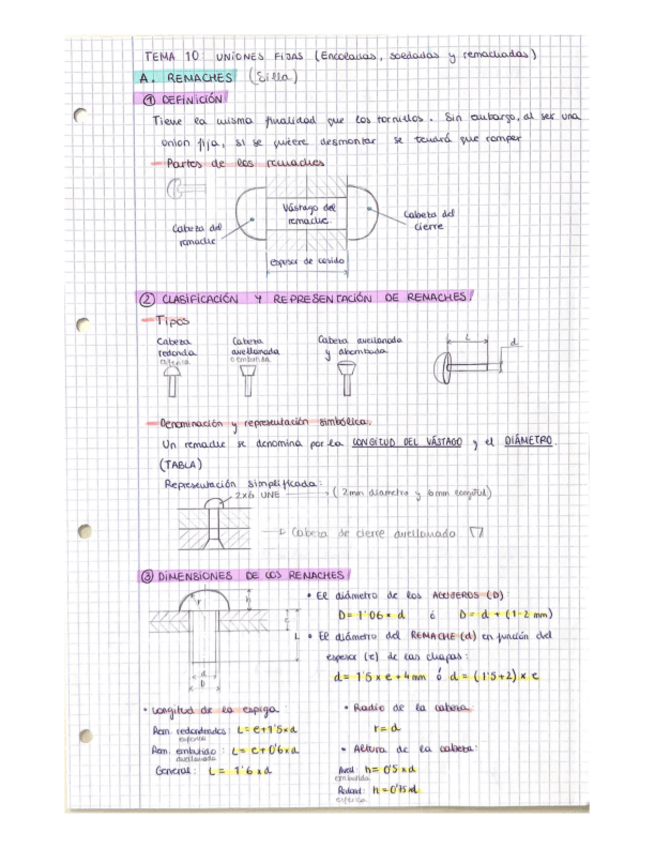 TEMA 10 UNIONES FIJAS (Encoladas, soldadas y remachadas)
A. REMACHES (Silla)
① DEFINICIÓN
Tiene la misma finalidad que los tornillos. Sin embargo, al ser una
union fija, si se quiere desmontar se tendrá que romper
Partes de los remaches
Vástago del
remache
Cabeza del
remache
Cabeza del
cierre
espesor de cosido
② CLASIFICACIÓN Y REPRESENTACIÓN DE REMACHES!
Tipos
Cabeza
redonda
esferica
Cabeza
avellanada
o embutida
Cabeza avellanada
y abombada
L
d
Denominación y representación simbólica.
Un remache se denomina por la LONGITUD DEL VÁSTAGO y el DIÁMETRO.
(TABLA)
Representación simplificada:
2x6 UNE (2mm diametro y 6mm longitud)
Cabeza de cierre avellanado
③ DIMENSIONES DE LOS REMACHES!
r
h
e
L
d
D
• El diámetro de los AGUJEROS (D)
D= 1'06 x d ó D= d + (1-2 mm)
• El diámetro del REMACHE (d) en función del
espesor (e) de las chapas:
d= 1'5 x e + 4mm ó d = (1'5+2) x e
• Longitud de la espiga:
Rem. redondeados: L= e+1'5xd
esferica
Rem. embutido: L= e+0'6xd
avellanada
General: L= 1'6 x d
• Radio de la cabeza:
r=d
• Altura de la cabeza:
Avell: h= 0'5 x d
embutida
Redond: h= 0'75 xd
esferica